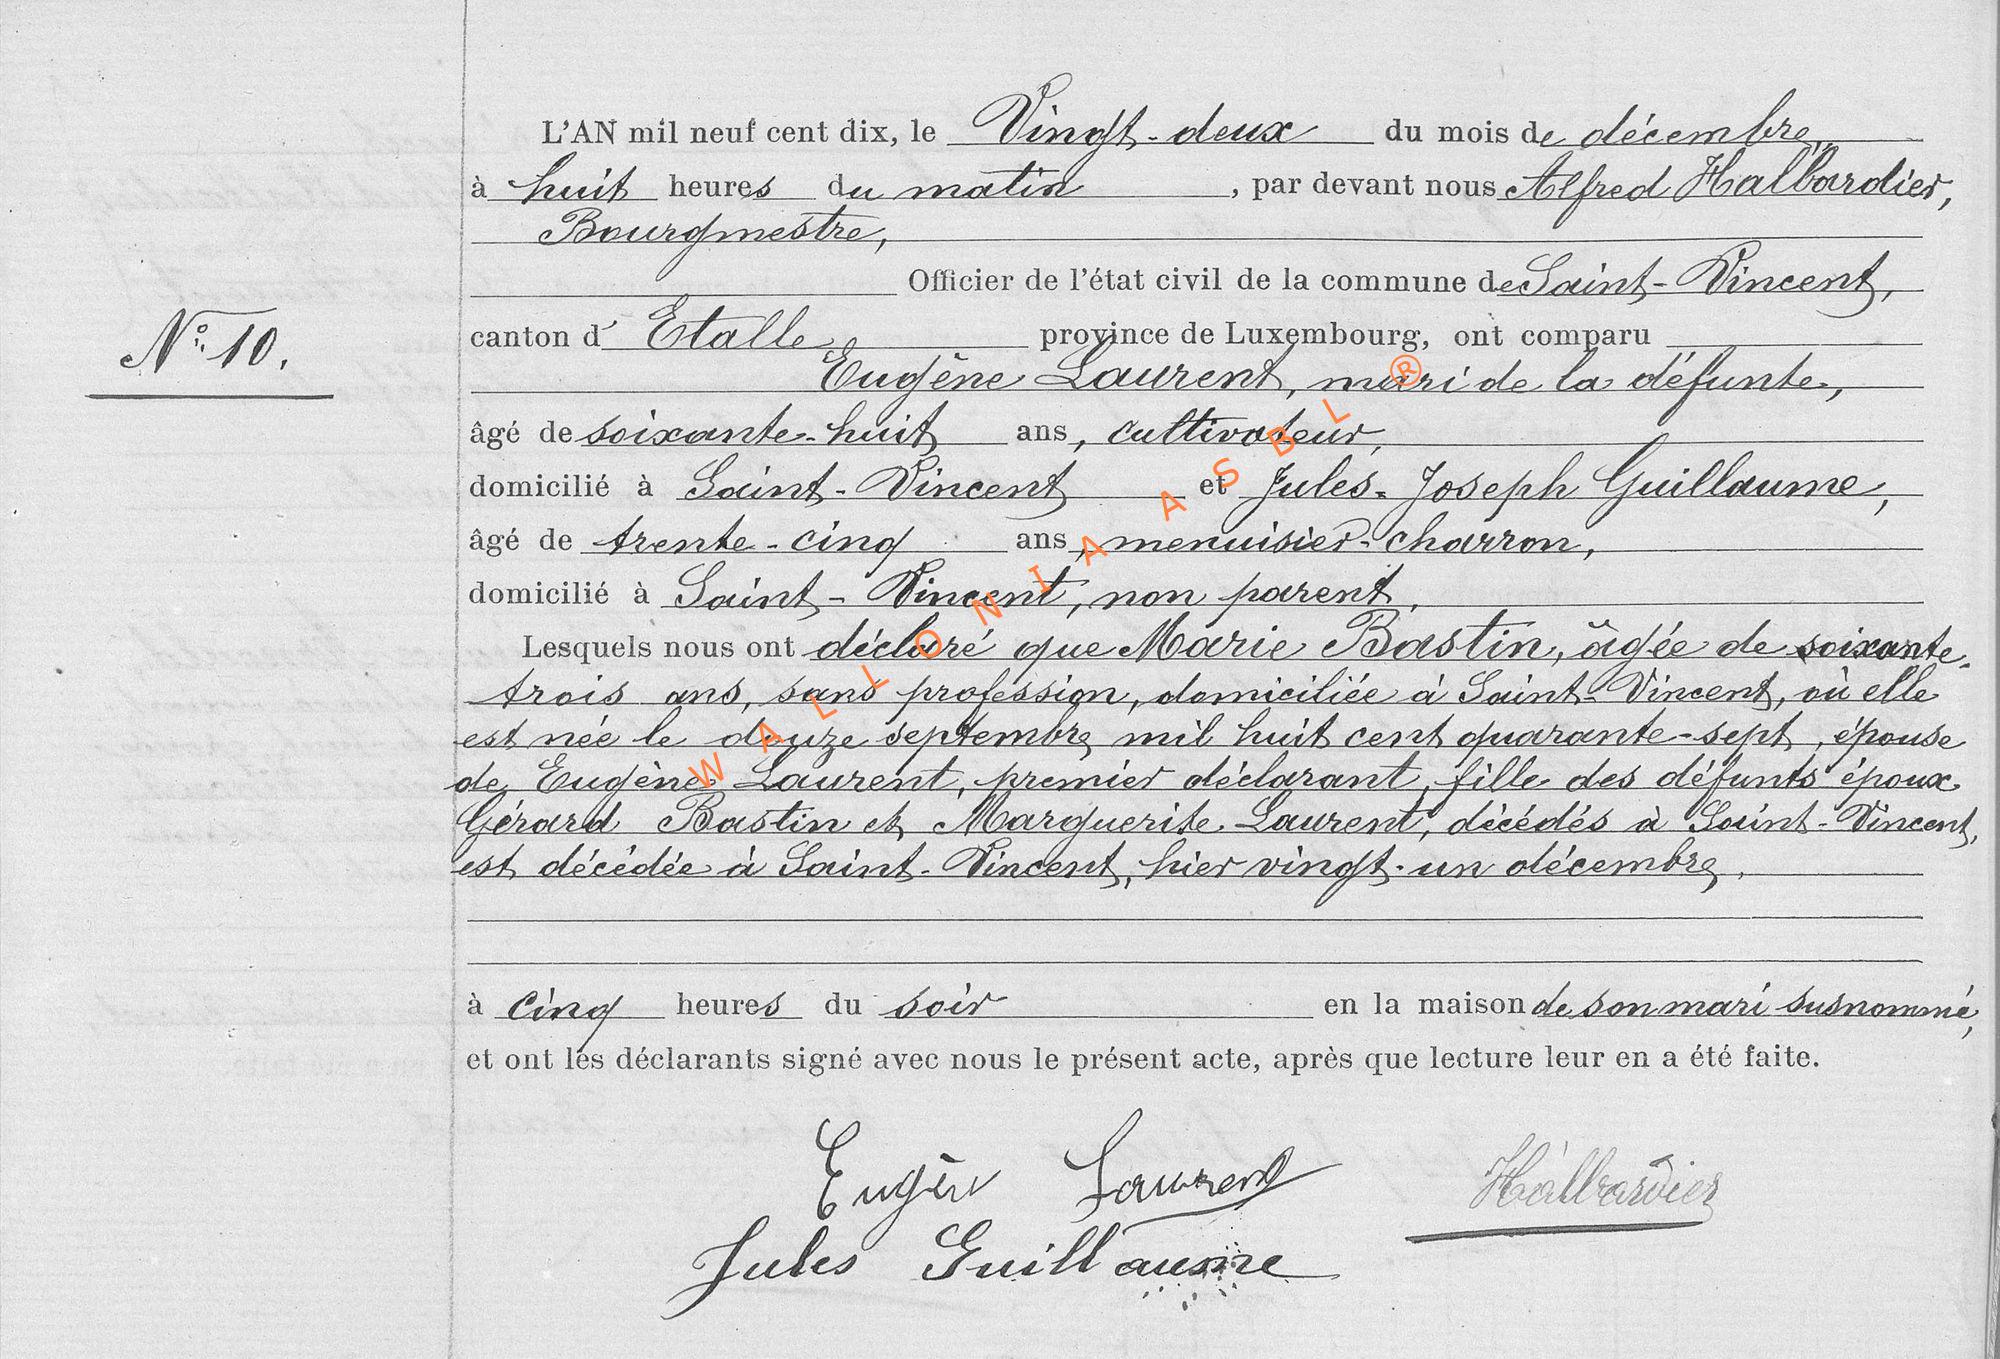 L'AN mil neuf cent dix, le Vingt-deux du mois de décembre
à huit heures du matin, par devant nous Alfred Halbardier,
Bourgmestre,
Officier de l'état civil de la commune de Saint-Vincent,
canton d'Etalle province de Luxembourg, ont comparu
N° 10.
Eugène Laurent, mari de la défunte,
âgé de soixante-huit ans, cultivateur,
domicilié à Saint-Vincent et Jules-Joseph Guillaume,
âgé de trente-cinq ans, menuisier-charron,
domicilié à Saint-Vincent, non parent.
Lesquels nous ont déclaré que Marie Bastin, âgée de soixante-
trois ans, sans profession, domiciliée à Saint-Vincent, où elle
est née le douze septembre mil huit cent quarante-sept, épouse
de Eugène Laurent, premier déclarant, fille des défunts époux
Gérard Bastin et Marguerite Laurent, décédés à Saint-Vincent,
est décédée à Saint-Vincent, hier vingt-un décembre,
à cinq heures du soir en la maison de son mari susnommé,
et ont les déclarants signé avec nous le présent acte, après que lecture leur en a été faite.
Eugène Laurent
Halbardier
Jules Guillaume
WALLONIA ASBL ®